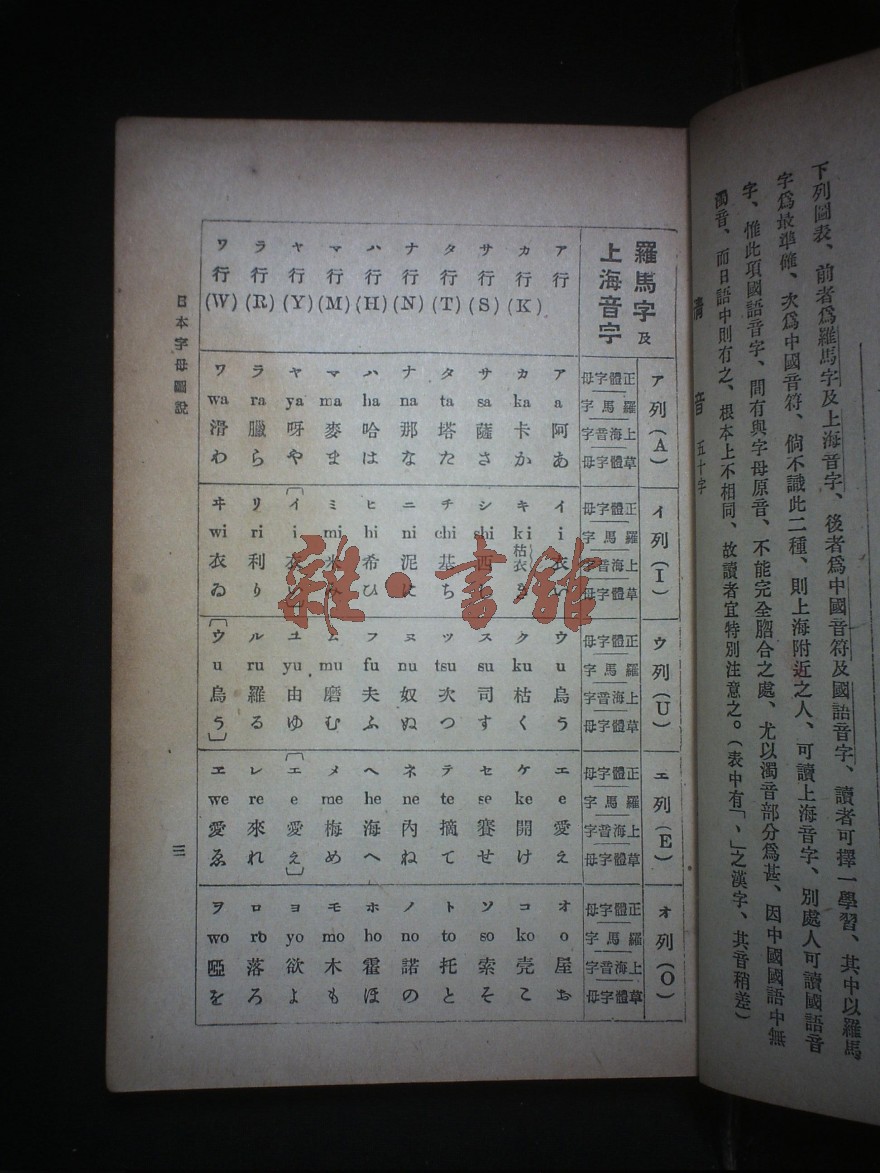 下列圖表、前者爲羅馬字及上海音字、後者爲中國音符及國語音字、讀者可擇一學習、其中以羅馬
字爲最準確、次爲中國音符、倘不識此二種、則上海附近之人、可讀上海音字、別處人可讀國語音
字、惟此項國語音字、間有與字母原音、不能完全脗合之處、尤以濁音部分爲甚、因中國國語中無
濁音、而日語中則有之、根本上不相同、故讀者宜特別注意之。(表中有「、」之漢字、其音稍差)
清音 五十字
羅馬字及
上海音字
ア行 カ行(K) サ行(S) タ行(T) ナ行(N) ハ行(H) マ行(M) ヤ行(Y) ラ行(R) ワ行(W)
ア列(A)
正體字母 ア カ サ タ ナ ハ マ ヤ ラ ワ
羅馬字 a ka sa ta na ha ma ya ra wa
上海音字 阿 卡 薩 塔 那 哈 麥 呀 臘 滑
草體字母 あ か さ た な は ま や ら わ
イ列(I)
正體字母 イ キ シ チ ニ ヒ ミ 〔イ リ ヰ
羅馬字 i ki shi chi ni hi mi i ri wi
上海音字 衣 枯衣 西 基 泥 希 米 衣 利 衣
草體字母 い き し ち に ひ み い〕 り ゐ
ウ列(U)
正體字母 ウ ク ス ツ ヌ フ ム ユ ル 〔ウ
羅馬字 u ku su tsu nu fu mu yu ru u
上海音字 烏 枯 司 次 奴 夫 磨 由 羅 烏
草體字母 う く す つ ぬ ふ む ゆ る う〕
ェ列(E)
正體字母 エ ケ セ テ ネ ヘ メ 〔エ レ ヱ
羅馬字 e ke se te ne he me e re we
上海音字 愛 開 賽 摘 內 海 梅 愛 來 愛
草體字母 え け せ て ね へ め え〕 れ ゑ
オ列(O)
正體字母 オ コ ソ ト ノ ホ モ ヨ ロ ヲ
羅馬字 o ko so to no ho mo yo ro wo
上海音字 屋 壳 索 托 諾 霍 木 欲 落 啞
草體字母 お こ そ と の ほ も よ ろ を
日本字母圖説
三
雜·書館